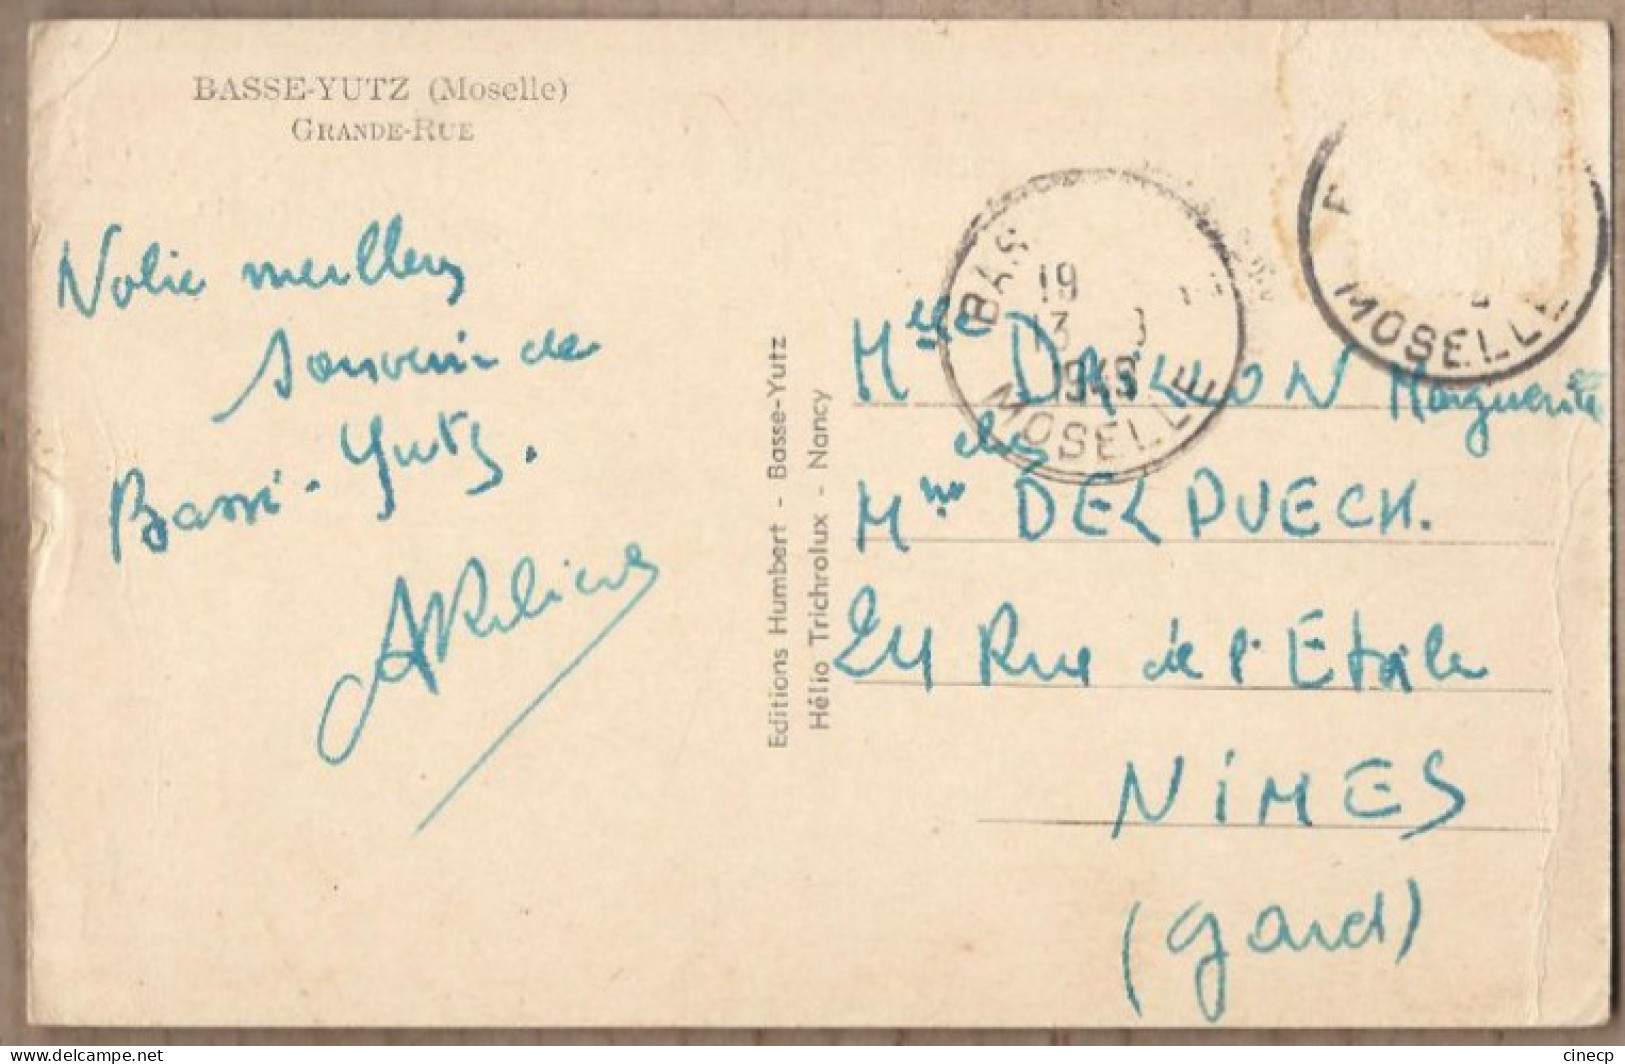 BASSE-YUTZ (Moselle)
GRANDE-RUE
Notre meilleur
souvenir de
Basse-Yutz.
Editions Humbert - Basse-Yutz
Hélio Trichrolux - Nancy
BAS
19
13
1949
MOSELLE
MOSELLE
Mlle DAILLON Marguerite
chez
Mme DELPUECH.
24 Rue de l'Etoile
NIMES
(Gard)
delcampe.net
cinecp